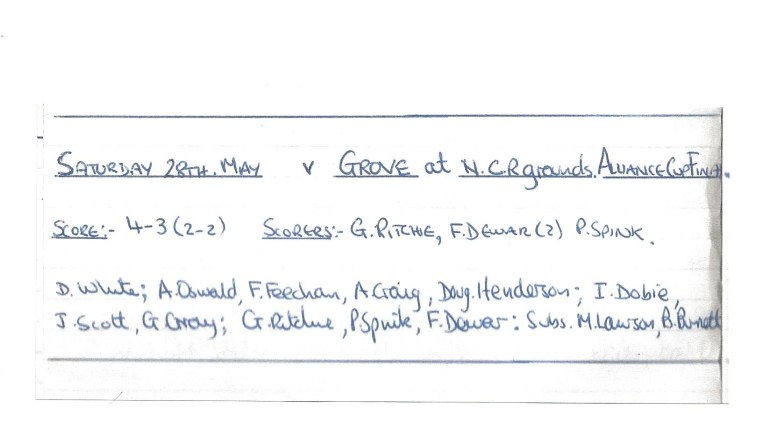 SATURDAY 28TH. MAY v GROVE at N.C.R grounds. ALLIANCE CUP FINAL.
SCORE:- 4-3 (2-2) SCORERS:- G. RITCHIE, F. DEWAR (2) P. SPINK.
D. White; A. Oswald, F. Feechan, A. Craig, Doug. Henderson; I. Dobie,
J. Scott, G. Gray; G. Ritchie, P. Spink, F. Dewar: Subs. M. Lawson, B. Burnett